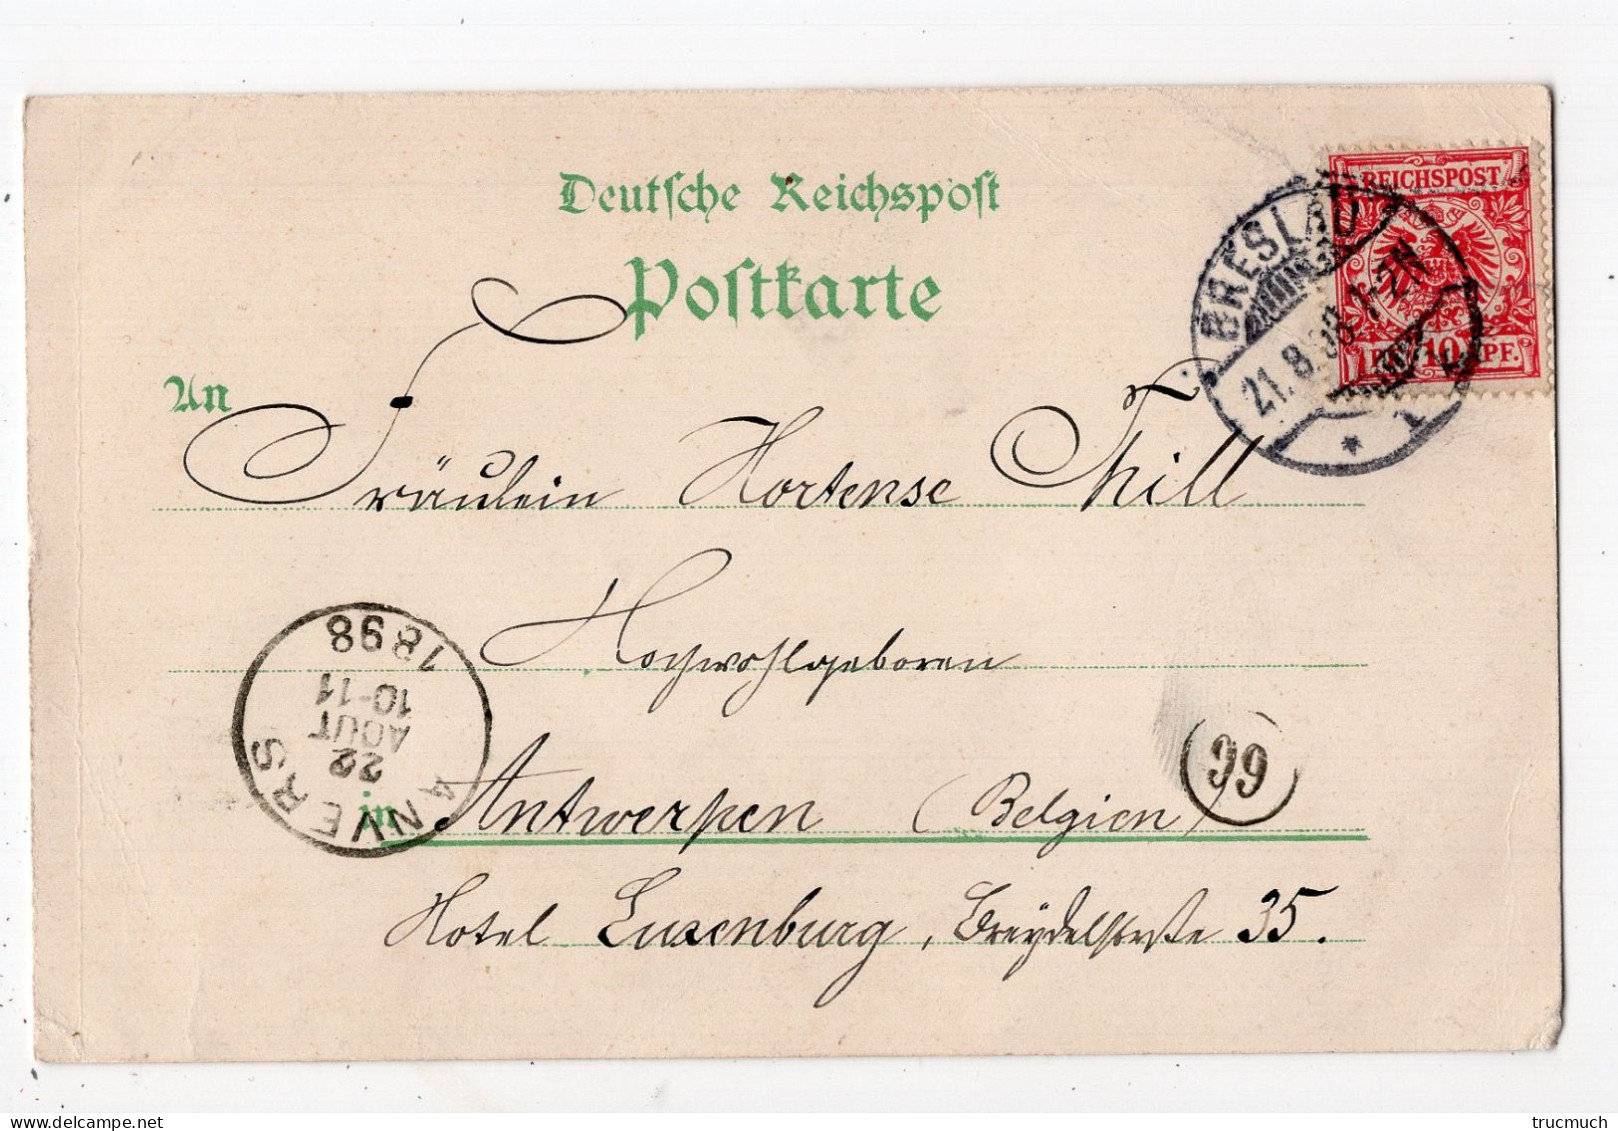 Deutsche Reichspost
Postkarte
REICHSPOST
10 PF.
BRESLAU
21.8.98. 1-2N
1
*
An
Fräulein Hortense Thill
Hochwohlgeboren
1898
10-11
AOUT
22
ANVERS
99
in Antwerpen (Belgien)
Hotel Luxenburg, Breydelstraße 35.
trucmuch